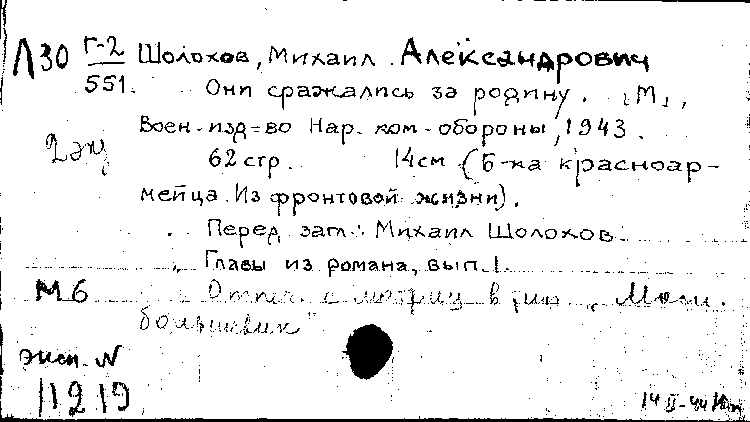 Л30 Г-2 Шолохов, Михаил Александрович
551. Они сражались за родину. [М],
2 экз Воен. изд-во Нар. ком. обороны, 1943.
62 стр. 14см (Б-ка красноар-
мейца. Из фронтовой жизни).
Перед загл.: Михаил Шолохов.
Главы из романа, вып. 1.
М6 Отпеч. с матриц в тип. „Моск.
большевик"
экз. N
11219
14 II-44